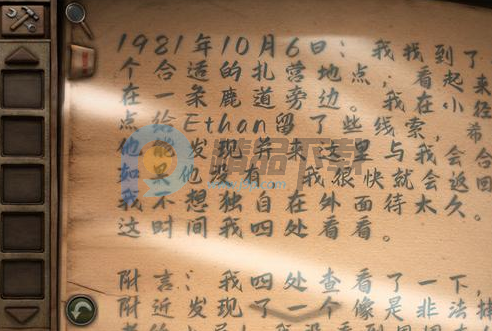 1921年10月6日：我找到了
个合适的扎营地点；看起来
在一条鹿道旁边。我在小径
点给Ethan留了些线索，希
他能发现并来这里与我会合
如果他没有，我很快就会返回
我不想独自在外面待太久。
这时间我四处看看。
附言：我四处查看了一下，
附近发现了一个像是非法捕